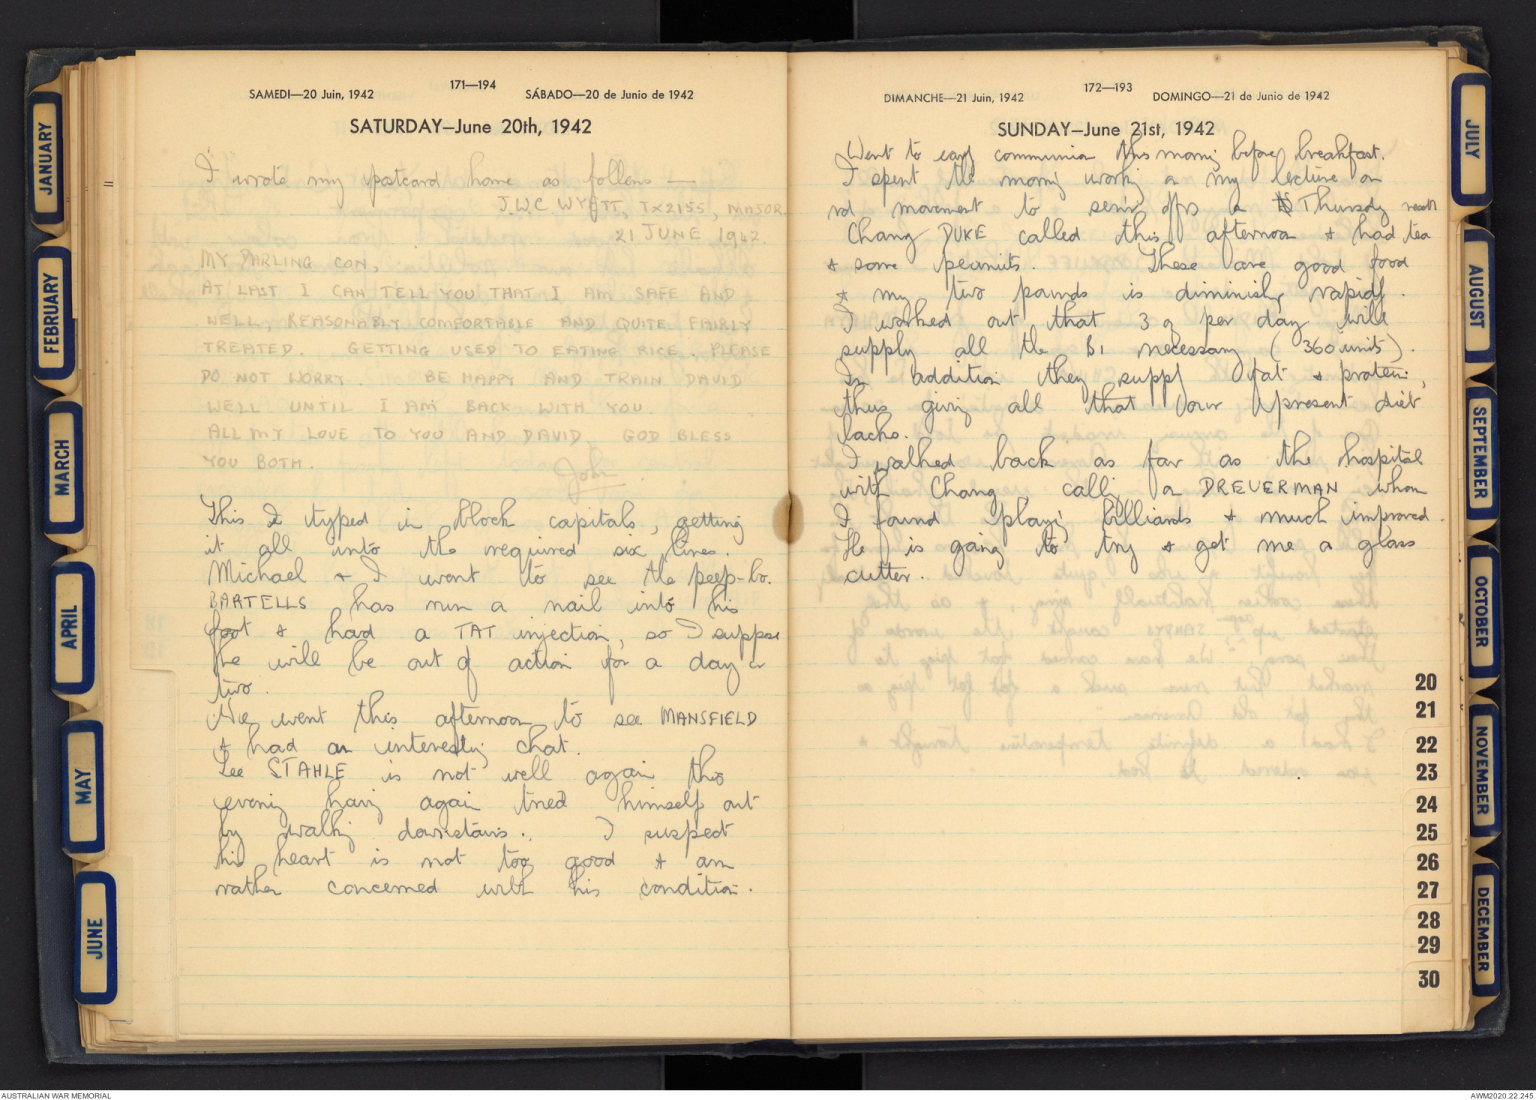 JANUARY
FEBRUARY
MARCH
APRIL
MAY
JUNE
171—194
SAMEDI—20 Juin, 1942
SÁBADO—20 de Junio de 1942
SATURDAY—June 20th, 1942
I wrote my postcard home as follows —
J.W.C. WYETT, TX2155, MAJOR.
21 JUNE 1942.
MY DARLING CON,
AT LAST I CAN TELL YOU THAT I AM SAFE AND
WELL, REASONABLY COMFORTABLE AND QUITE FAIRLY
TREATED. GETTING USED TO EATING RICE. PLEASE
DO NOT WORRY. BE HAPPY AND TRAIN DAVID
WELL UNTIL I AM BACK WITH YOU
ALL MY LOVE TO YOU AND DAVID. GOD BLESS
YOU BOTH.
John
This I typed in block capitals, getting
it all into the required six lines.
Michael & I went to see the peep-bo.
BARTELLS has run a nail into his
foot & had a TAT injection, so I suppose
he will be out of action for a day or
two.
We went this afternoon to see MANSFIELD
& had an interesting chat.
Lee STAHLE is not well again this
evening having again tried himself out
by walking downstairs. I suspect
his heart is not too good & am
rather concerned with his condition.
172—193
DIMANCHE—21 Juin, 1942
DOMINGO—21 de Junio de 1942
SUNDAY—June 21st, 1942
Went to early communion this morning before breakfast.
I spent the morning working on my lecture on
rd movement to senior offrs on Thursday next
Chang DUKE called this afternoon & had tea
& some peanuts. These are good food
& my two pounds is diminishing rapidly.
I worked out that 3 oz per day will
supply all the B1 necessary (360 units).
In addition they supply fat & protein,
thus giving all that our present diet
lacks.
I walked back as far as the hospital
with Chang calling on DREVERMAN whom
I found playing billiards & much improved.
He is going to try & get me a glass
cutter.
20
21
22
23
24
25
26
27
28
29
30
JULY
AUGUST
SEPTEMBER
OCTOBER
NOVEMBER
DECEMBER
AUSTRALIAN WAR MEMORIAL
AWM2020.22.245